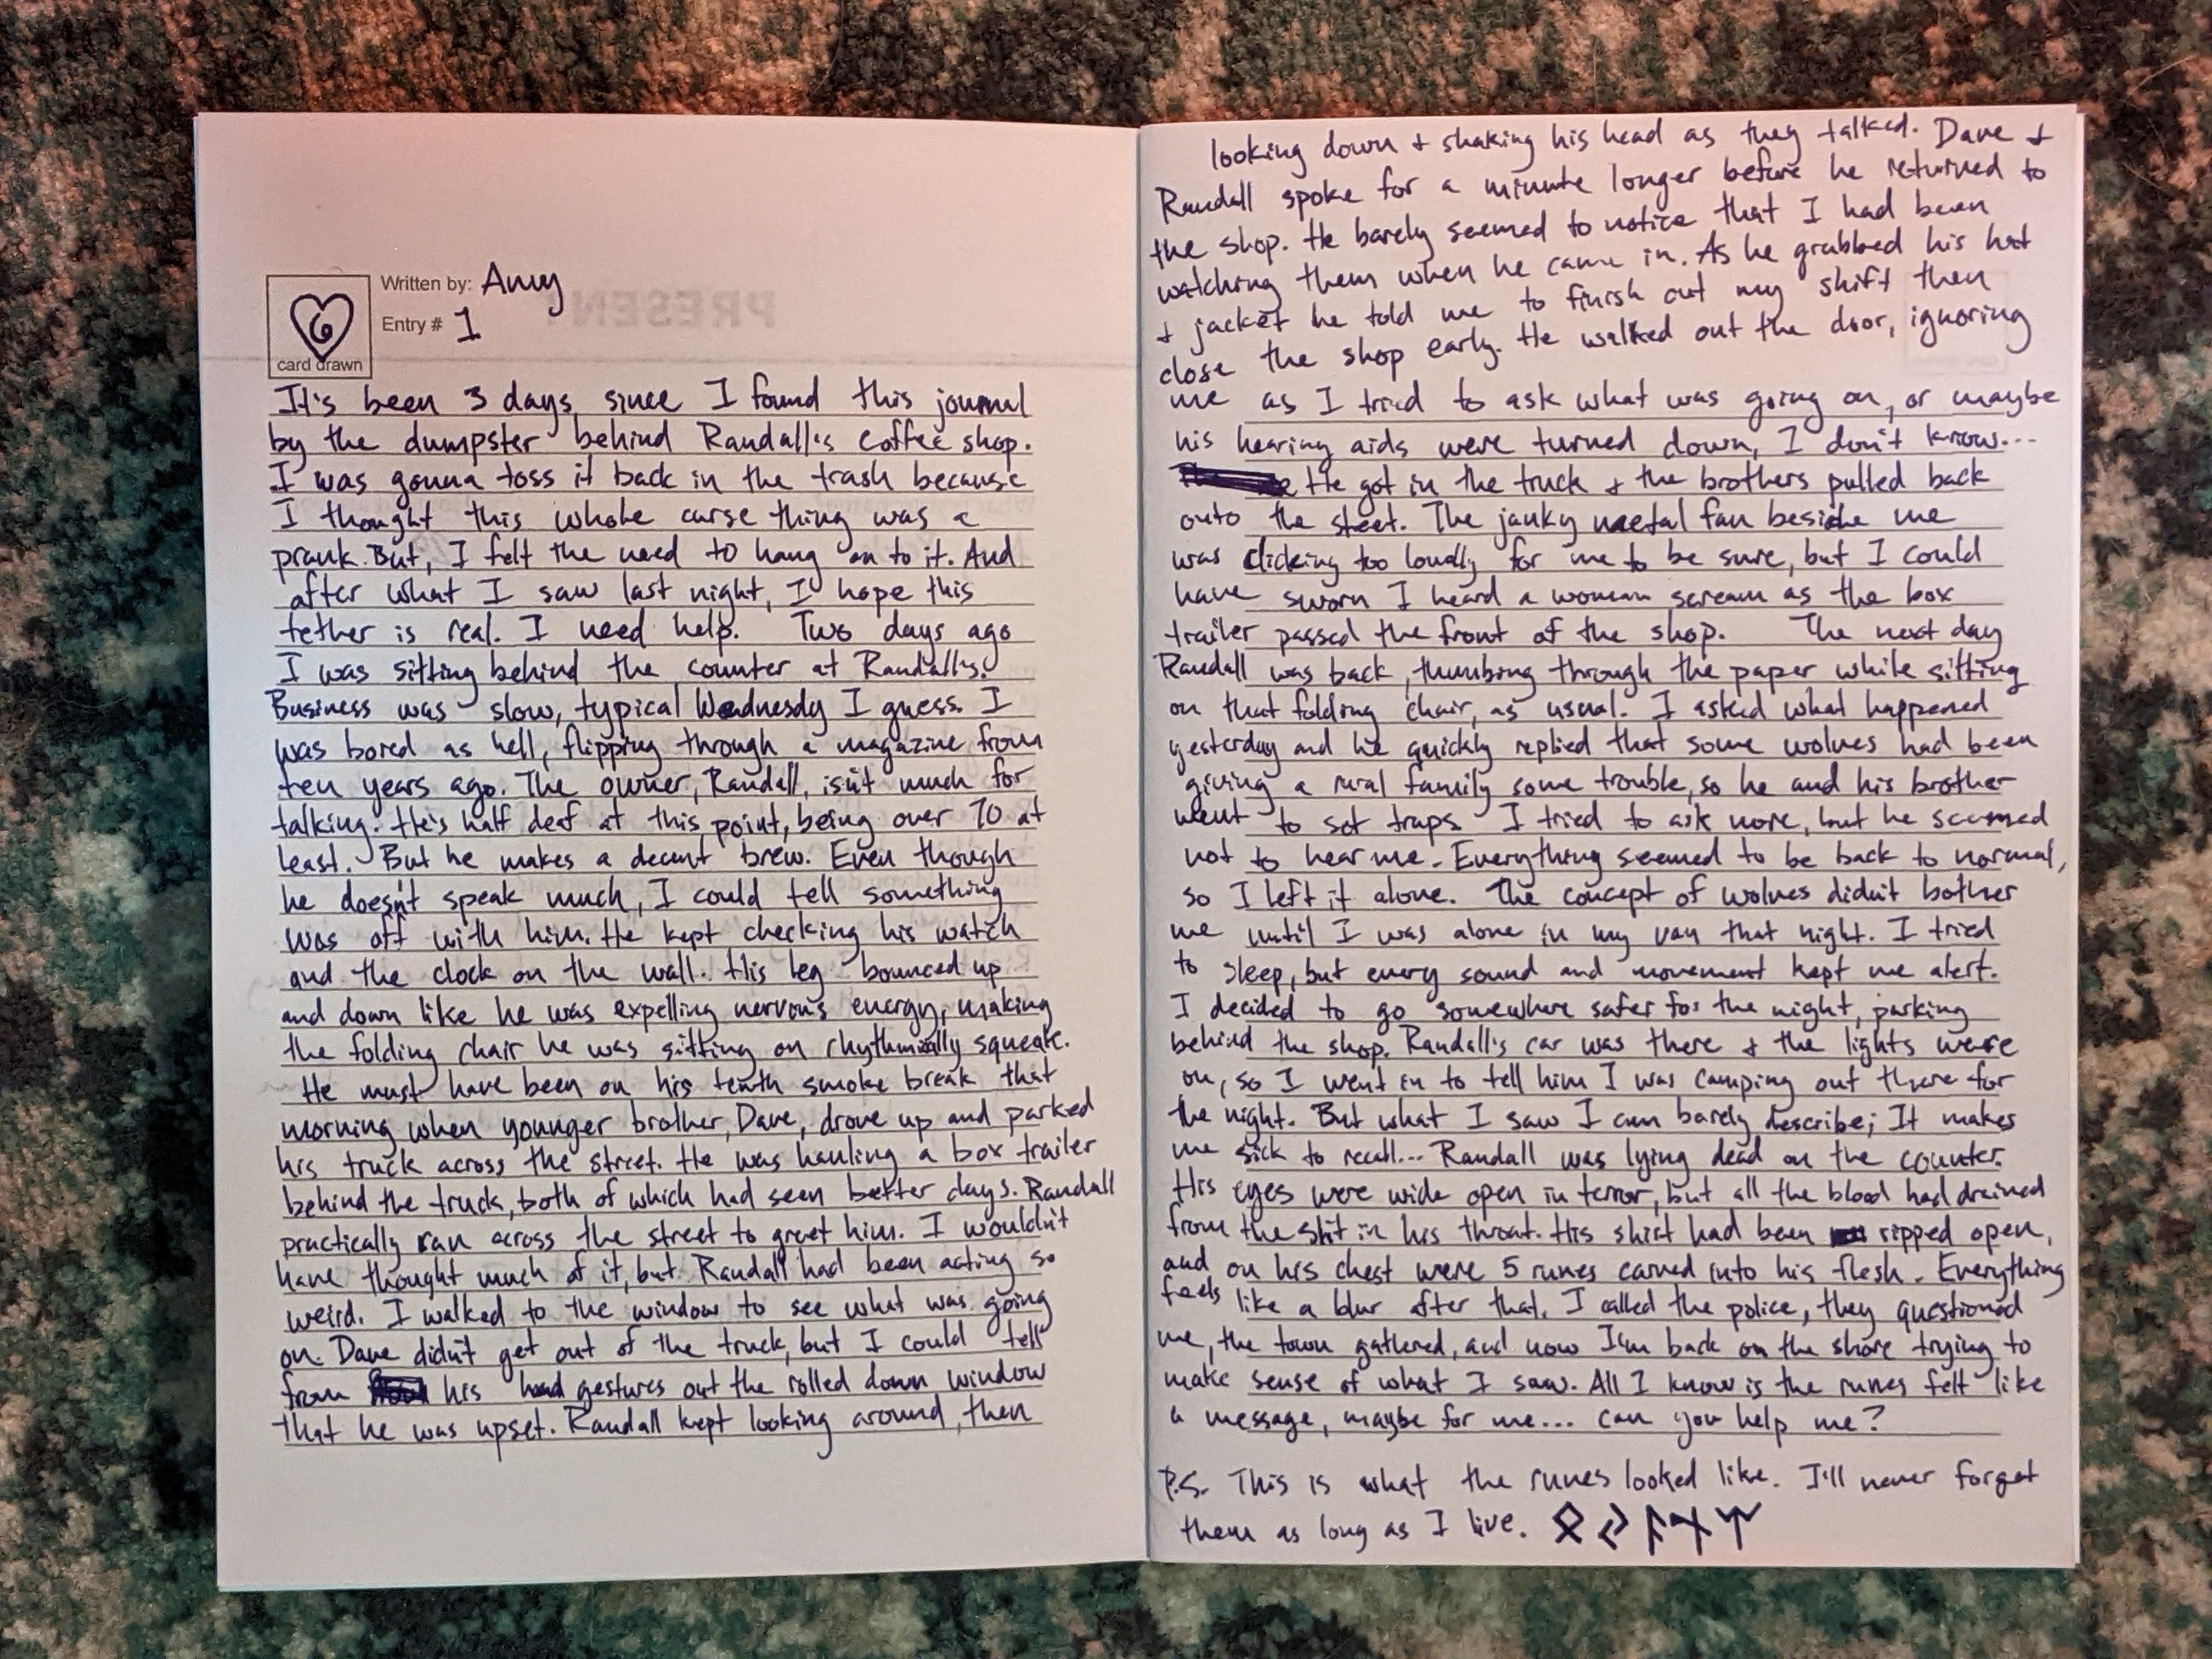 Written by: Amy
Entry # 1
6
card drawn
It's been 3 days since I found this journal
by the dumpster behind Randall's coffee shop.
I was gonna toss it back in the trash because
I thought this whole curse thing was a
prank. But, I felt the need to hang on to it. And
after what I saw last night, I hope this
tether is real. I need help. Two days ago
I was sitting behind the counter at Randall's.
Business was slow, typical Wednesdy I guess. I
was bored as hell, flipping through a magazine from
ten years ago. The owner, Randall, isn't much for
talking. He's half deaf at this point, being over 70 at
least. But he makes a decent brew. Even though
he doesn't speak much, I could tell something
was off with him. He kept checking his watch
and the clock on the wall. His leg bounced up
and down like he was expelling nervous energy, making
the folding chair he was sitting on rhythmically squeak.
He must have been on his tenth smoke break that
morning when younger brother, Dave, drove up and parked
his truck across the street. He was hauling a box trailer
behind the truck, both of which had seen better days. Randall
practically ran across the street to greet him. I wouldn't
have thought much of it, but Randall had been acting so
weird. I walked to the window to see what was going
on. Dave didn't get out of the truck, but I could tell
from his hand gestures out the rolled down window
that he was upset. Randall kept looking around, then
looking down + shaking his head as they talked. Dave +
Randall spoke for a minute longer before he returned to
the shop. He barely seemed to notice that I had been
watching them when he came in. As he grabbed his hat
+ jacket he told me to finish out my shift then
close the shop early. He walked out the door, ignoring
me as I tried to ask what was going on, or maybe
his hearing aids were turned down, I don't know...
He got in the truck + the brothers pulled back
onto the street. The janky metal fan beside me
was clicking too loudly for me to be sure, but I could
have sworn I heard a woman scream as the box
trailer passed the front of the shop. The next day
Randall was back, thumbing through the paper while sitting
on that folding chair, as usual. I asked what happened
yesterday and he quickly replied that some wolves had been
giving a rural family some trouble, so he and his brother
went to set traps. I tried to ask more, but he seemed
not to hear me. Everything seemed to be back to normal,
so I left it alone. The concept of wolves didn't bother
me until I was alone in my van that night. I tried
to sleep, but every sound and movement kept me alert.
I decided to go somewhere safer for the night, parking
behind the shop. Randall's car was there + the lights were
on, so I went in to tell him I was camping out there for
the night. But what I saw I can barely describe; It makes
me sick to recall... Randall was lying dead on the counter.
His eyes were wide open in terror, but all the blood had drained
from the slit in his throat. His shirt had been ripped open,
and on his chest were 5 runes carved into his flesh. Everything
feels like a blur after that. I called the police, they questioned
me, the town gathered, and now I'm back on the shore trying to
make sense of what I saw. All I know is the runes felt like
a message, maybe for me... can you help me?
P.S. This is what the runes looked like. I'll never forget
them as long as I live.